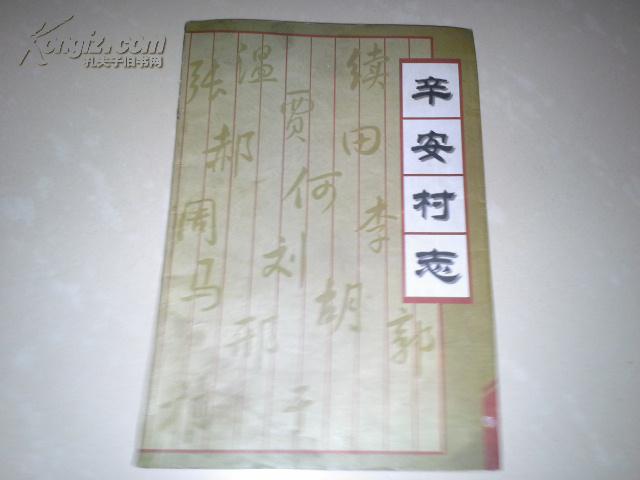 Kongfz.com
孔夫子旧书网
辛安村志
续
田
李
胡
郭
温
贾
何
刘
邢
王
张
郝
周
马